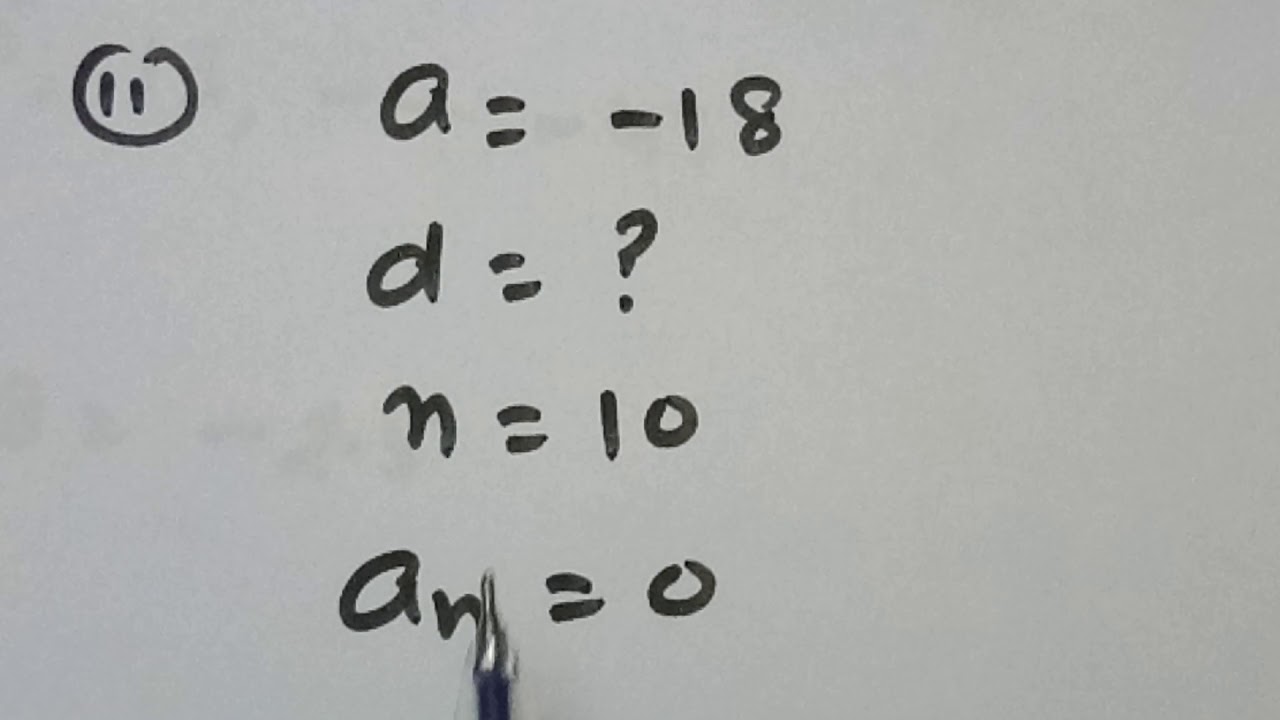 (11) a = -18
d = ?
n = 10
an = 0